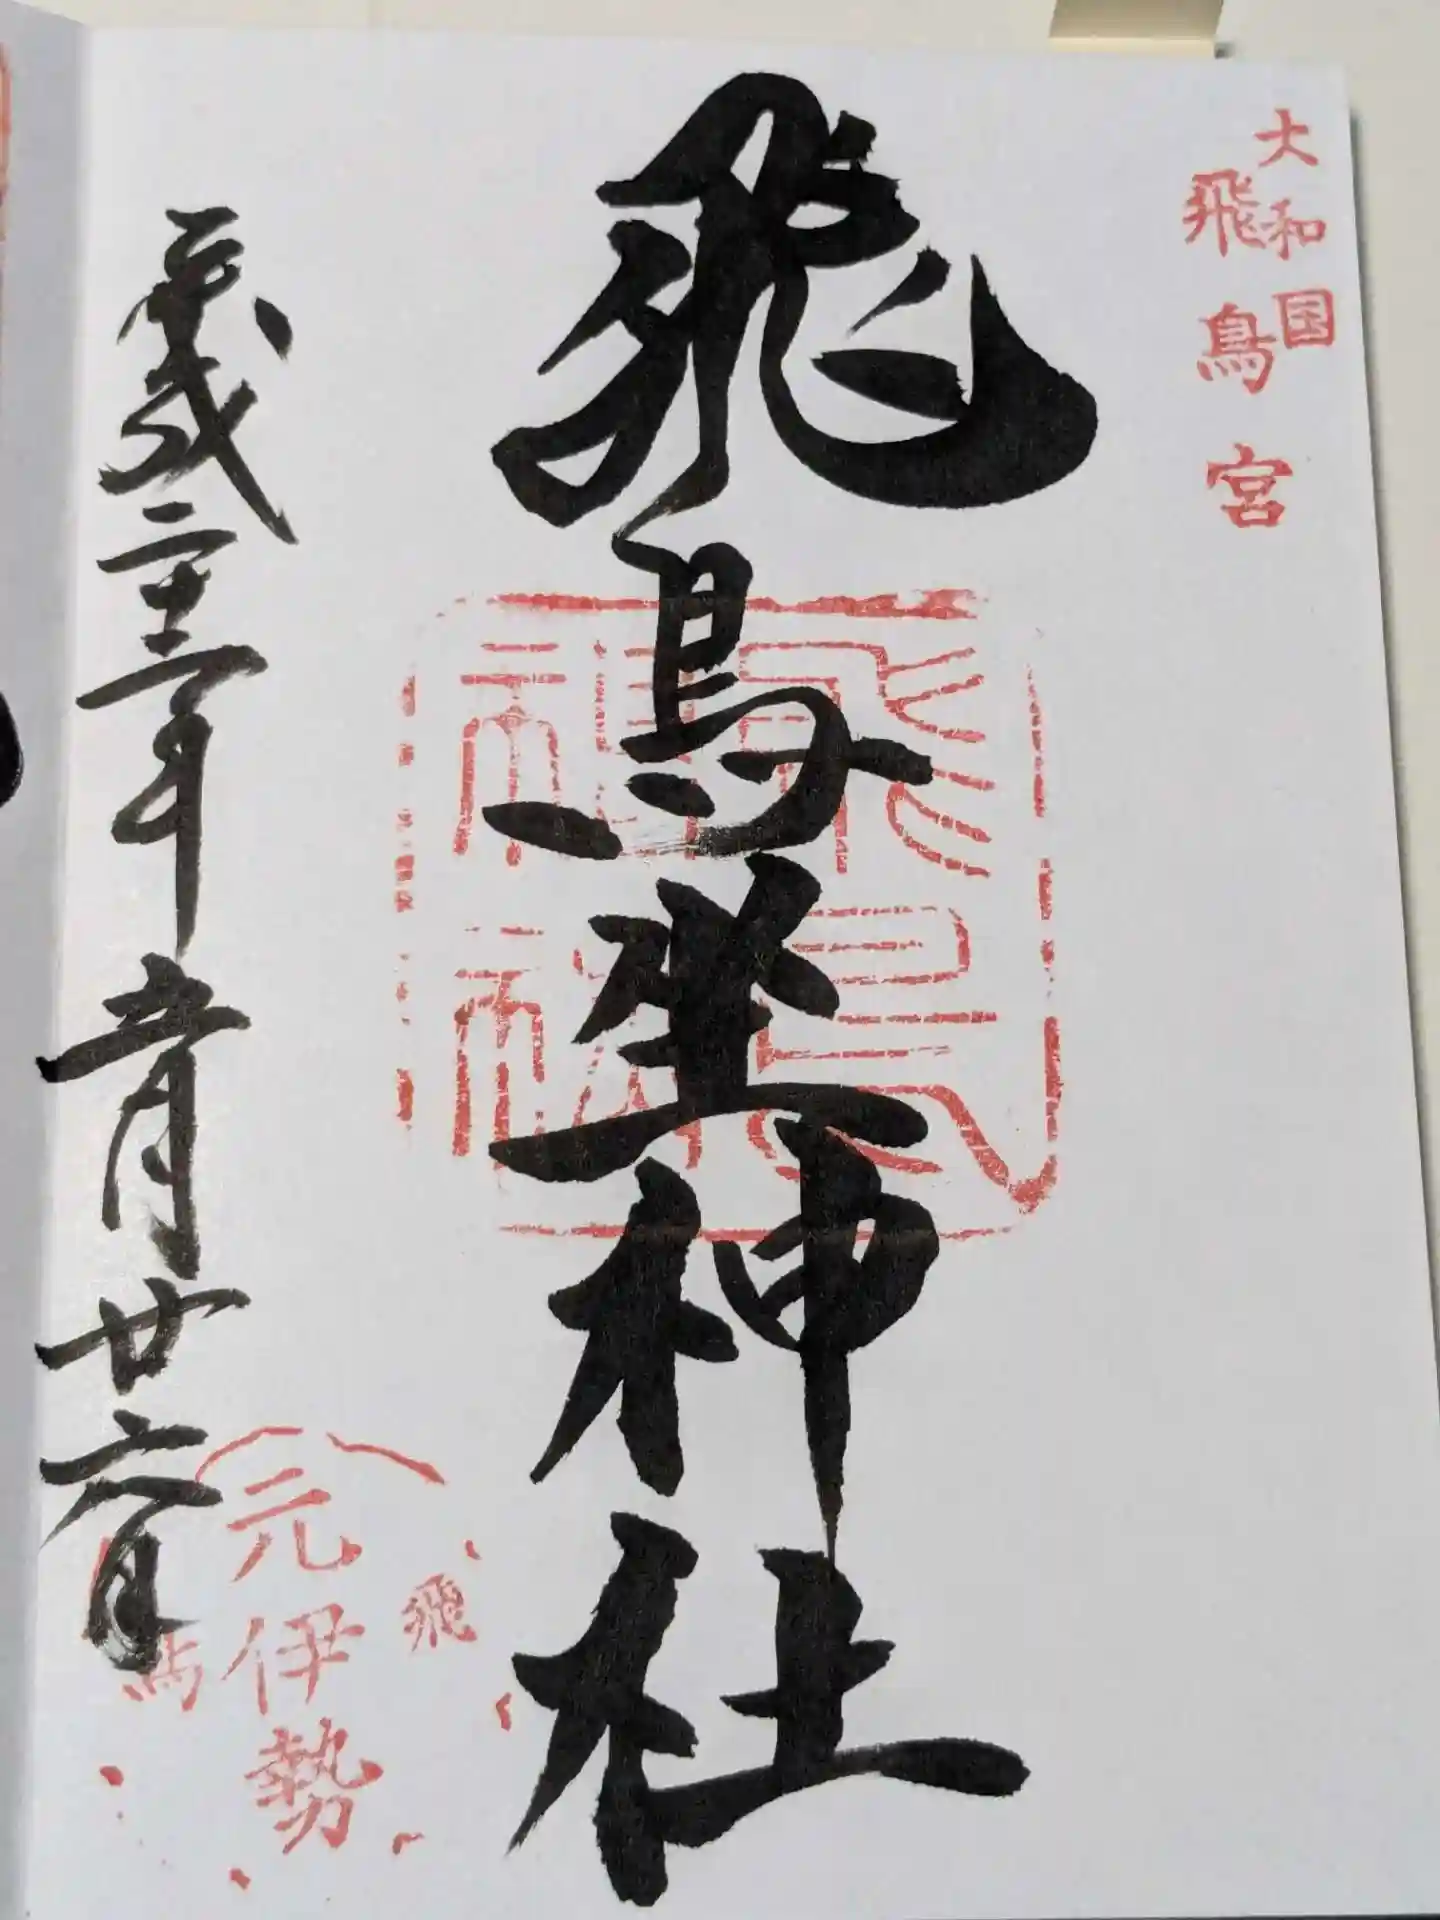 大和国
飛鳥宮
飛鳥坐神社
飛鳥
神社
平成
年
月廿六日
飛
元伊勢
鳥